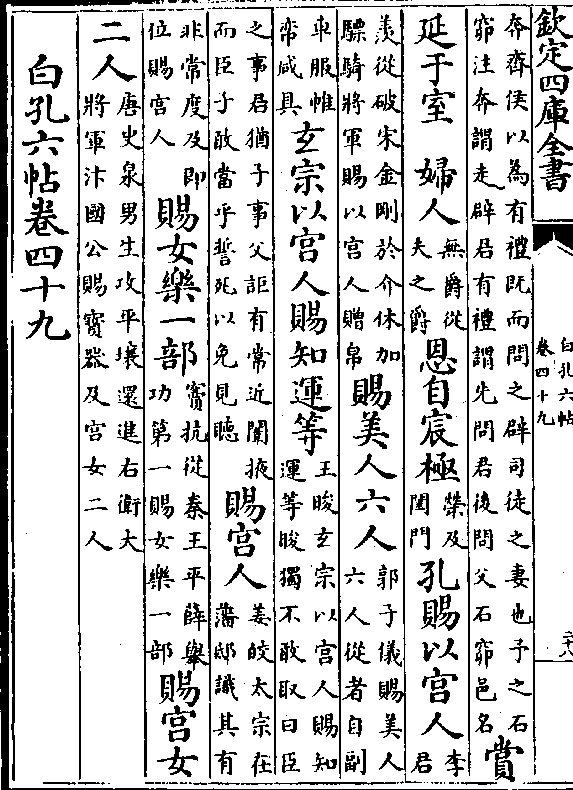 欽定四庫全書
白孔六帖
卷四十九
二十八
奔齊侯以為有禮既而問之辟司徒之妻也予之石
窌注奔謂走辟君有禮謂先問君後問父石窌邑名
賞
延于室
婦人
無爵從
夫之爵
恩自宸極
榮及
閨門
孔賜以宫人
李
君
羨從破宋金剛於介休加
驃騎將軍賜以宫人贈帛
賜美人六人
郭子儀賜美人
六人從者自副
車服帷
帟咸具
玄宗以宫人賜知運等
王晙玄宗以宫人賜知
運等晙獨不敢取曰臣
之事君猶子事父詎有常近闈掖
而臣子敢當乎誓死以免見聽
賜宫人
姜皎太宗在
藩邸識其有
非常度及即
位賜宫人
賜女樂一部
竇抗從秦王平薛舉
功第一賜女樂一部
賜宫女
二人
唐史泉男生攻平壤還進右衛大
將軍汴國公賜寳器及宫女二人
白孔六帖卷四十九